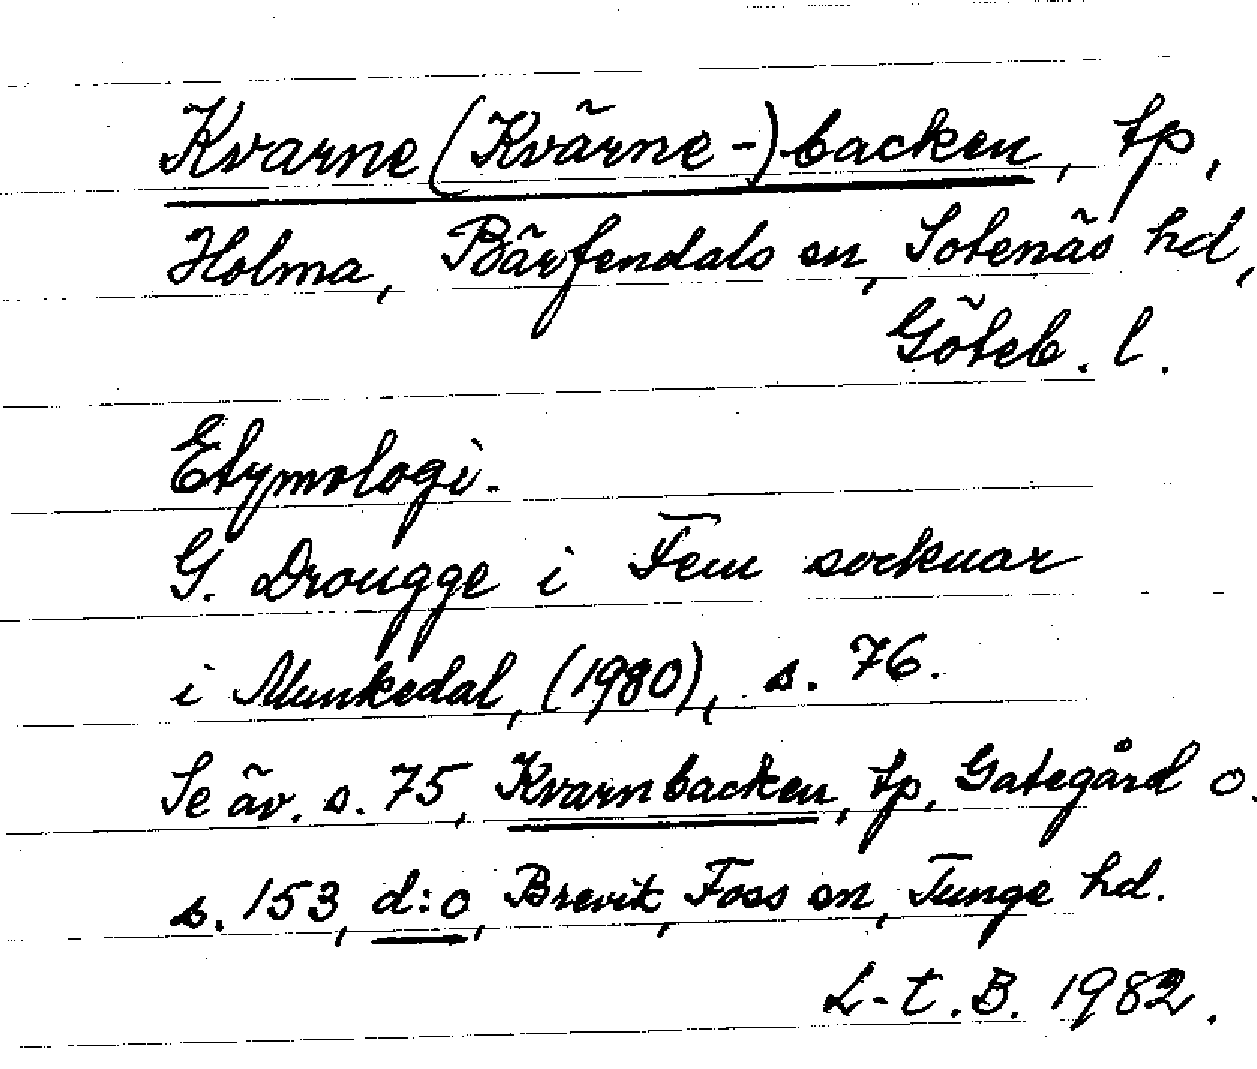 Kvarne (Kvärne-) backen, tp,
Holma, Bärfendals sn, Sotenäs hd,
Göteb. l.
Etymologi.
G. Drougge i Fem socknar
i Munkedal, (1980), s. 76.
Se äv. s. 75, Kvarnbacken, tp, Gategård o.
s. 153, d:o, Brevik, Foss sn, Tunge hd.
L-t. B. 1982.